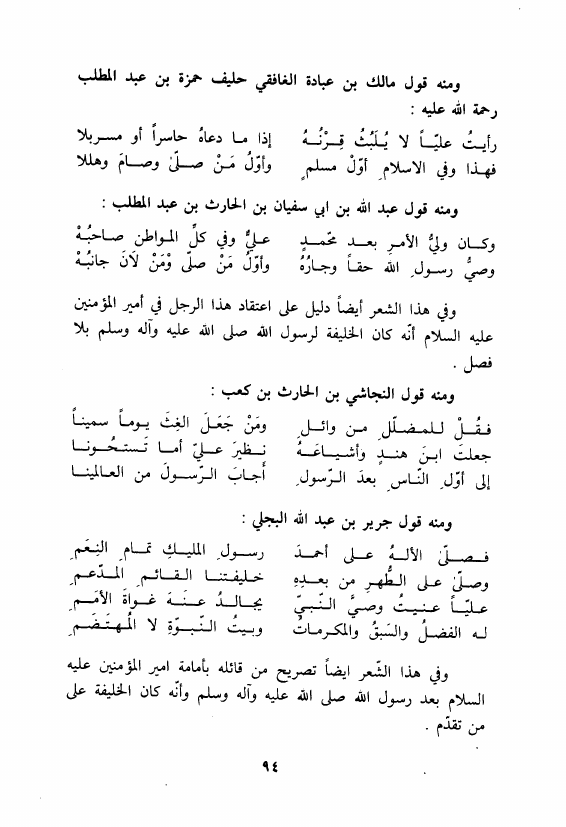 ومنه قول مالك بن عبادة الغافقي حليف حمزة بن عبد المطلب
رحمة الله عليه :
رأيتُ عليّاً لا يُلَبِّثُ قِرْنُهُ إذا ما دعاهُ حاسراً أو مسربلا
فهذا وفي الاسلامِ أوّلُ مسلمٍ وأوّلُ مَنْ صلّى وصامَ وهللا
ومنه قول عبد الله بن ابي سفيان بن الحارث بن عبد المطلب :
وكان وليُّ الأمرِ بعد محمّدٍ عليٌّ وفي كلِّ المواطنِ صاحبُهْ
وصيُّ رسولِ الله حقاً وجارُهُ وأوّلُ مَنْ صلّى وُمَنْ لَانَ جانبُهْ
وفي هذا الشعر أيضاً دليل على اعتقاد هذا الرجل في أمير المؤمنين
عليه السلام أنّه كان الخليفة لرسول الله صلى الله عليه وآله وسلم بلا
فصل .
ومنه قول النجاشي بن الحارث بن كعب :
فقُلْ للمضلّلِ من وائلٍ ومَنْ جَعَلَ الغثَ يوماً سمينا
جعلتَ ابنَ هندٍ وأشياعَهُ نظيرَ عليّ أما تَستحُونا
إلى أوّلِ النّاسِ بعدَ الرّسولِ أجابَ الرّسولَ من العالمينا
ومنه قول جرير بن عبد الله البجلي :
فصلّى الألهُ على أحمدَ رسولِ المليكِ تمامِ النِعَمِ
وصلّى على الطُّهرِ من بعدِهِ خليفتنا القائمِ المدّعمِ
عليّاً عنيتُ وصيَّ النّبيِّ يجالدُ عنهُ غواةَ الأمَمِ
له الفضلُ والسَبقُ والمكرماتُ وبيتُ النّبوّةِ لا المُهتضَمِ
وفي هذا الشّعر ايضاً تصريح من قائله بأمامة امير المؤمنين عليه
السلام بعد رسول الله صلى الله عليه وآله وسلم وأنّه كان الخليفة على
من تقدّم .
٩٤